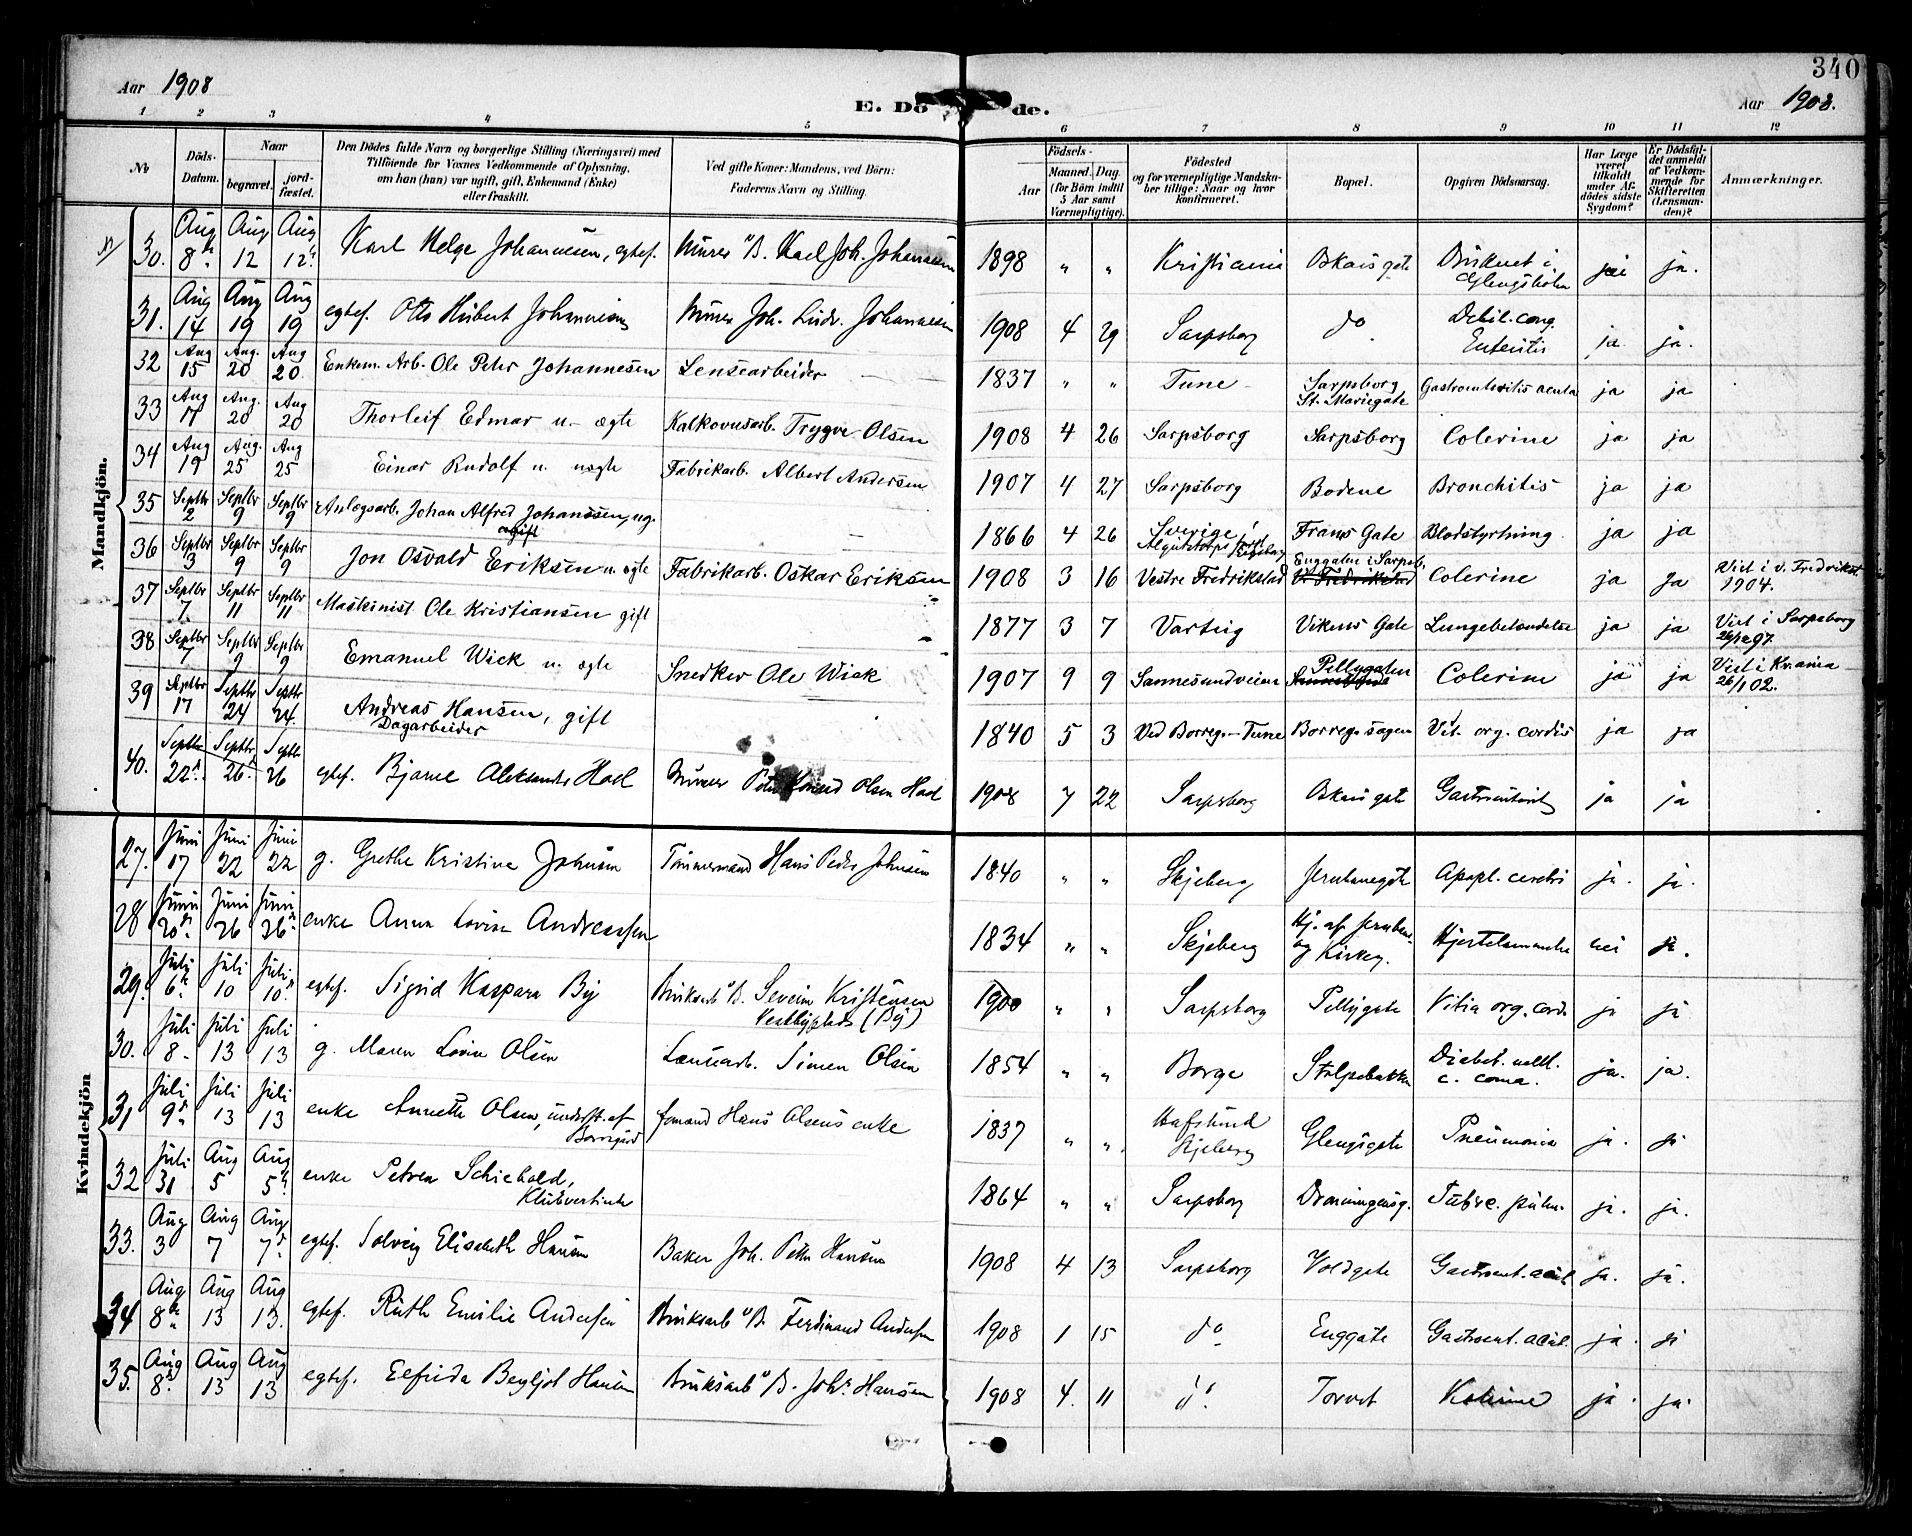 340
Aar 1908
E. Dö de.
Aar 1908.
1 2 3 4 5 6 7 8 9 10 11 12
No
Döds-Datum.
Naar begravet. jordfæstet.
Den Dödes fulde Navn og borgerlige Stilling (Næringsvei) med
Tilföiende for Voxnes Vedkommende af Oplysning,
om han (hun) var ugift, gift, Enkemand (Enke)
eller fraskilt.
Ved gifte Koner: Mandens, ved Börn:
Faderens Navn og Stilling.
Födsels-
Aar
Maaned. Dag.
(for Börn indtil
5 Aar samt
Værnepligtige).
Födested
og for værnepligtige Mandskaber tillige: Naar og hvor
konfirmeret.
Bopæl.
Opgiven Dödsaarsag.
Har Læge
været
tilkaldt
under Afdödes sidste
Sygdom?
Er Dödsfaldet anmeldt
af Vedkommende for
Skifteretten
(Lensmanden)?
Anmærkninger.
Mandkjön.
30. Aug 8 Aug 12 Aug 12 Karl Helge Johannesen, egtef. Murer Karl Joh. Johannesen 1898 " " Kristiania Oskars gate Druknet i Glengsholen ja ja.
31. Aug 14 Aug 19 Aug 19 egtef. Otto Hubert Johannesen Murer Joh. Ludv. Johannesen 1908 4 29 Sarpsborg do Debil. cong. Enteritis ja ja.
32 Aug 15 Aug. 20 Aug 20 Enkem. Arb. Ole Peter Johannesen Lensearbeider 1837 " " Tune Sarpsborg St. Mariegate Gastroenteritis acuta ja ja
33 Aug 17 Aug. 20 Aug 20 Thorleif Edmar u. ægte Kalkovnsarb. Trygve Olsen 1908 4 26 Sarpsborg Sarpsborg Colerine ja ja
34 Aug 19 Aug. 25 Aug 25 Einar Rudolf u. uægte Fabrikarb. Albert Andersen 1907 4 27 Sarpsborg Bodene Bronchitis ja ja
35 Septbr 2 Septbr 9 Septbr 9 Anlægsarb. Johan Alfred Johanssen, ug. 1866 4 26 Sverige Frans Gate Blodstyrtning ja ja
36 Septbr 3 Septbr 9 Septbr 9 Jon Osvald Eriksen u. ægte Fabrikarb. Oskar Eriksen 1908 3 16 Vestre Fredrikstad Enggaten i Sarpsb. Colerine ja ja Viet i v. Fredrikst. 1904.
37 Septbr 7 Septbr 11 Septbr 11 Maskinist Ole Kristiansen gift 1877 3 7 Varteig Vikens Gate Lungebetændelse ja ja Viet i Sarpsborg 26/12 97.
38 Septbr 7 Septbr 9 Septbr 9 Emanuel Wick u. ægte Snedker Ole Wick 1907 9 9 Sannesundveien Pellygaten Colerine ja ja Viet i Kr.ania 26/1 02.
39 Septbr 17 Septbr 24 Septbr 24. Andreas Hansen, gift Dagarbeider 1840 5 3 Ved Borreg. Tune Borregs sagen Vit. org. cordis ja ja
40. Septbr 22 Septbr 26 Septbr 26 egtef. Bjarne Aleksander Hoel Murer Peter Olsen Hoel 1908 7 22 Sarpsborg Oskars gate Gastroenterit ja ja
Kvindekjön
27. Juni 17 Juni 22 Juni 22 g. Grethe Kristine Johnsen Tömmermand Hans Peder Johnsen 1840 " " Skjeberg Jernbanegate Apopl. cerebri ja. ja.
28 Juni 20 Juni 26 Juni 26 enke Anna Lovise Andreassen 1834 " " Skjeberg Hj. af Jernbane- og Kirkeg. Hjertelammelse nei ja.
29. Juli 6 Juli 10 Juli 10 egtef. Sigrid Kaspara By Bruksarb B. Severin Kristensen Vestbyplads (By) 1900 " " Sarpsborg Pellygate Vitia org. cord. ja ja
30. Juli 8 Juli 13 Juli 13 g. Maren Lovise Olsen Lensearb. Simen Olsen 1854 " " Borge Stolpebakken Diabet. mell. c. coma. ja. ja.
31 Juli 9 Juli 13 Juli 13 enke Annette Olsen, underst. af Borregård formand Hans Olsens enke 1837 " " Hafslund Skjeberg Glengsgate Pneumonia ja. ja
32 Juli 31 Aug 5 Aug 5 enke Petrea Schiebold, Klubvertinde 1864 " " Sarpsborg Dronningensg. Tuberc. pulm. ja. ja.
33. Aug 3 Aug 7 Aug 7 egtef. Solveig Elisabeth Hansen Baker Joh. Petter Hansen 1908 4 13 Sarpsborg Voldgate Gastroent. acut. ja. ja.
34 Aug 8 Aug 13 Aug 13. egtef. Ruth Emilie Andersen Bruksarb B. Ferdinand Andersen 1908 1 15 do Enggate Gastroent. acut. ja. ja
35. Aug 8 Aug 13 Aug 13 egtef. Elfrida Bergljot Hansen Bruksarb B. Johs Hansen 1908 4. 11 do Torvet Kolerine ja. ja.